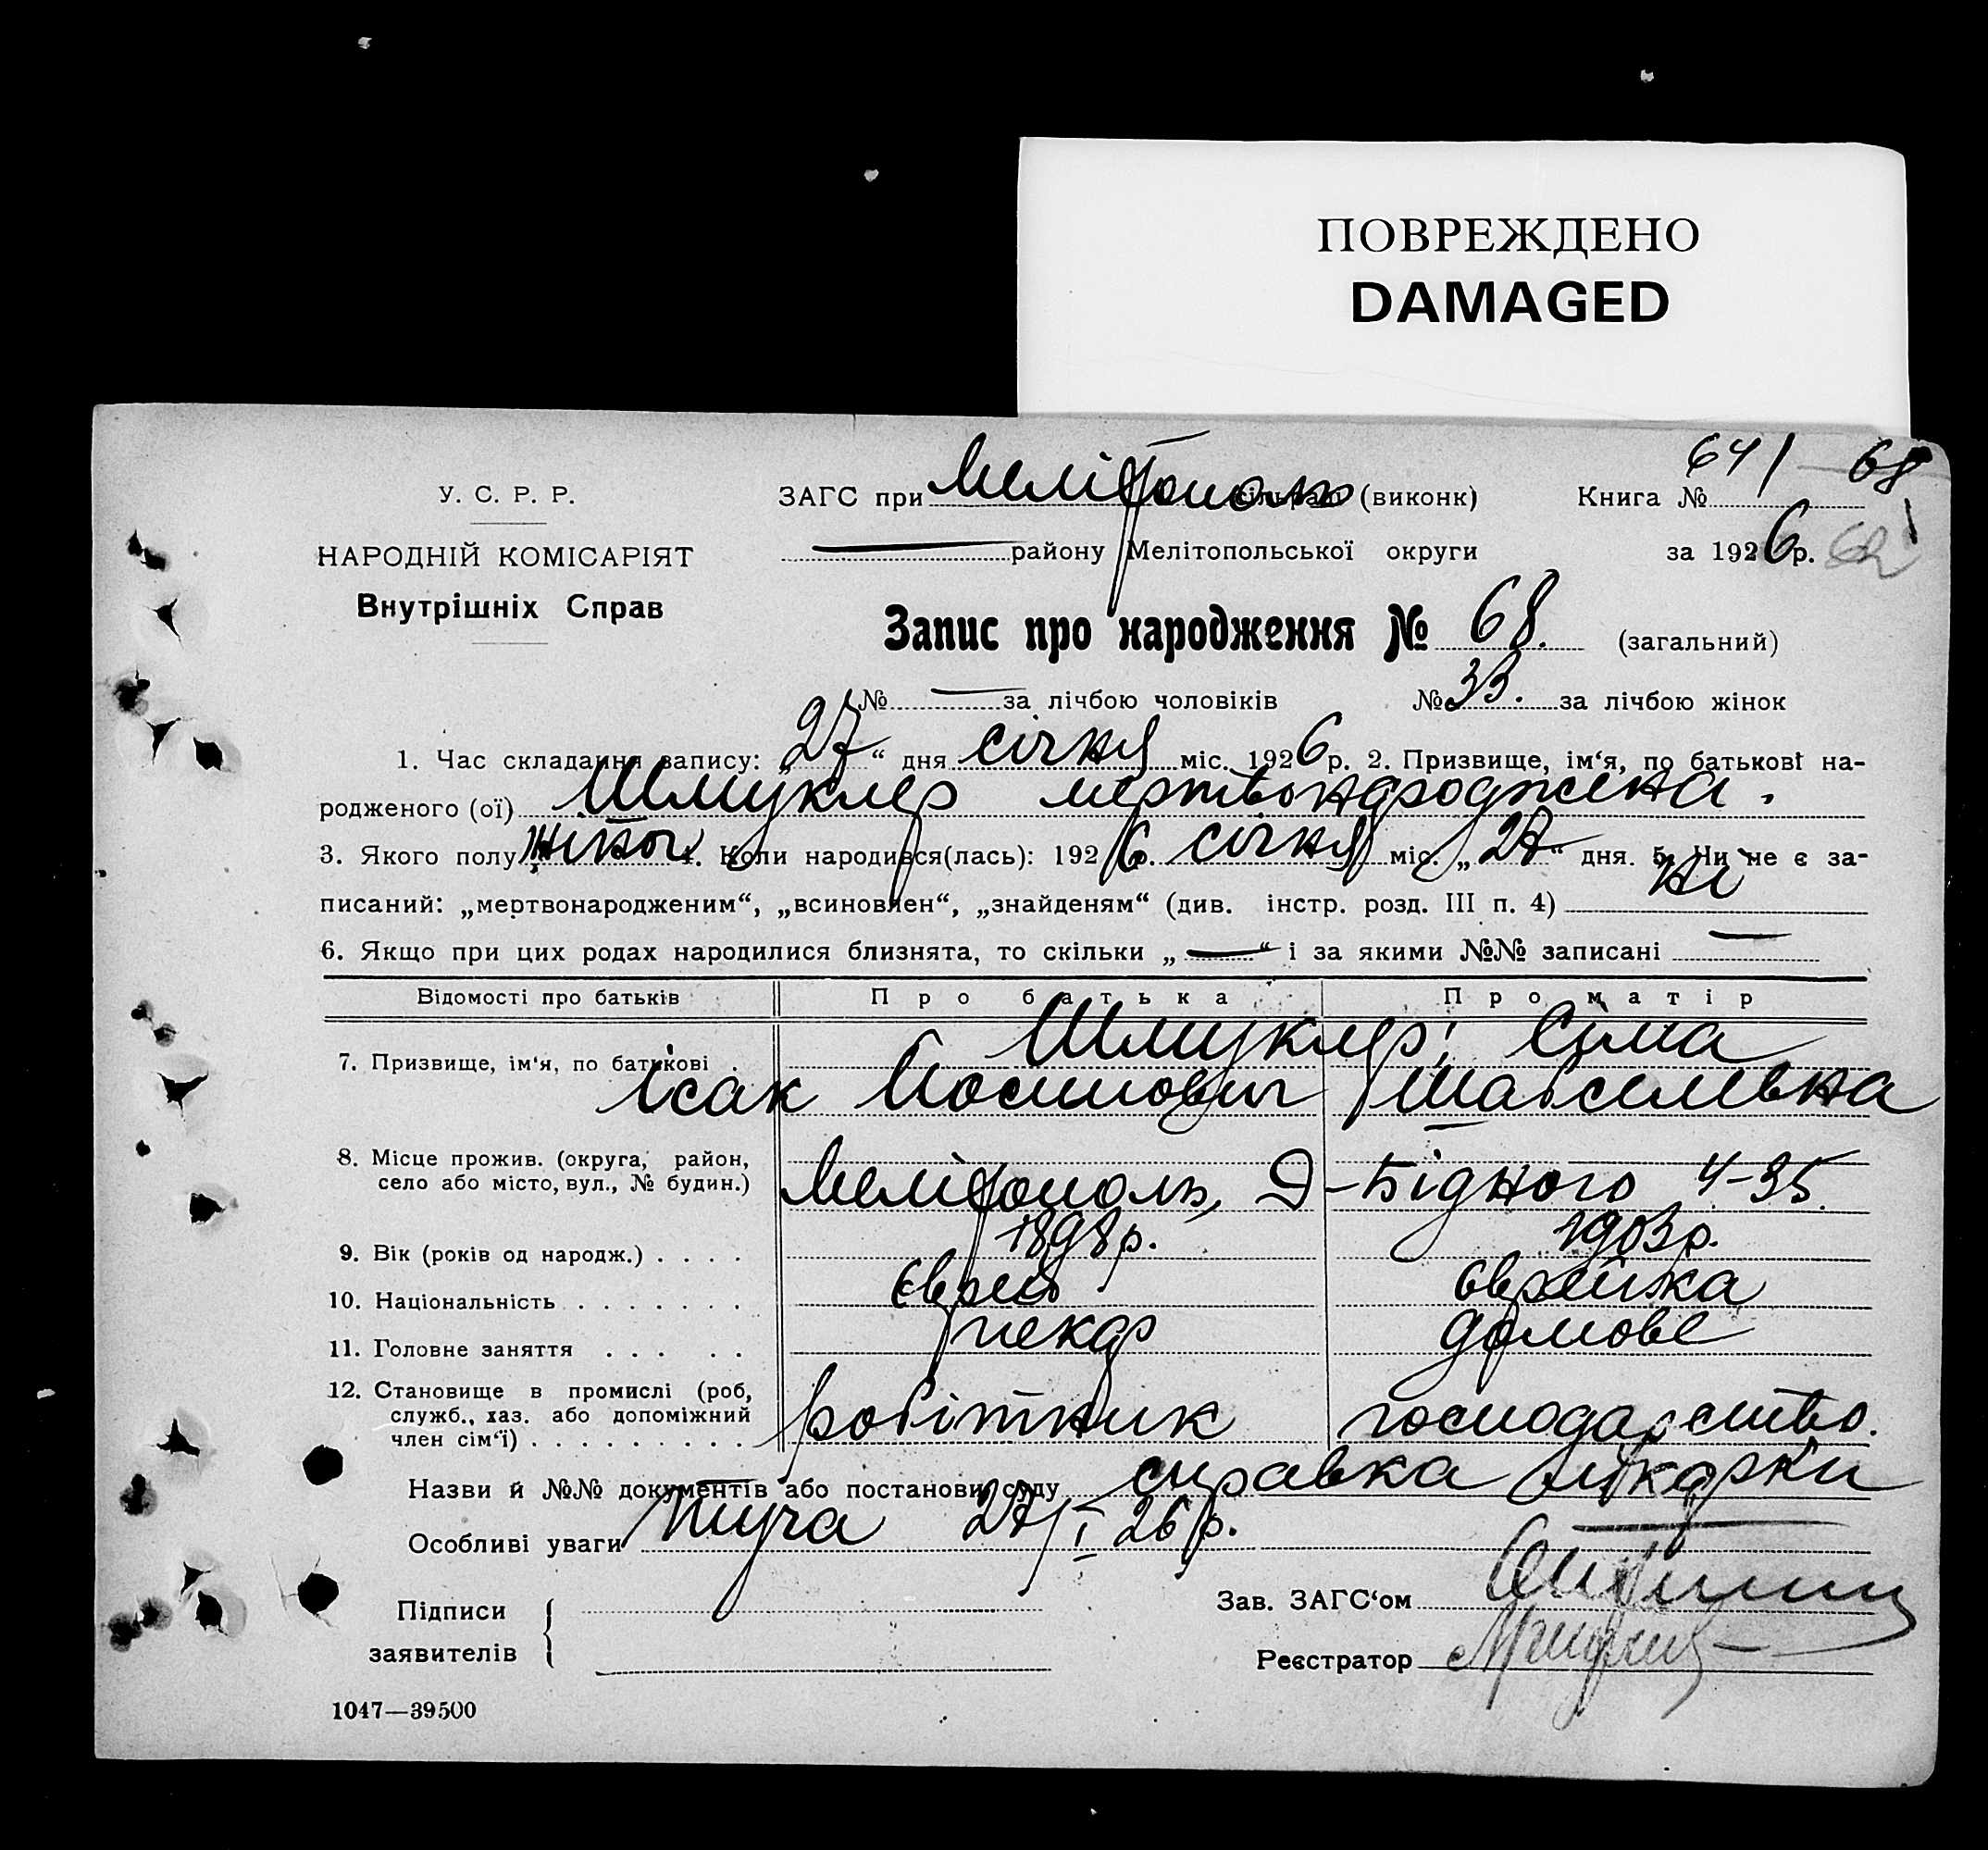 ПОВРЕЖДЕНО
DAMAGED
641 68
У. С. Р. Р. ЗАГС при Мелітополь (виконк) Книга №
НАРОДНІЙ КОМІСАРІЯТ — району Мелітопольської округи за 1926 р. 62
Внутрішніх Справ
Запис про народження № 68. (загальний)
№ — за лічбою чоловіків № 33. за лічбою жінок
1. Час складання запису: „27“ дня січня міс. 1926 р. 2. Призвище, ім‘я, по батькові на-
родженого (ої) Шмуклер мертвонароджена.
3. Якого полу жіноч 4. Коли народився(лась): 1926 р. січня міс. „27“ дня. 5. Чи не є за-
писаний: „мертвонародженим“, „всиновлен“, „знайденям“ (див. інстр. розд. III п. 4) ні
6. Якщо при цих родах народилися близнята, то скільки „—“ і за якими №№ записані —
Відомості про батьків Про батька Про матір
7. Призвище, ім‘я, по батькові . Шмуклер Сіма
Ісак Йосипович Шавселівна
8. Місце прожив. (округа, район,
село або місто, вул., № будин.) Мелітополь, Д-Бідного 4-35.
9. Вік (років од народж.) . . . . 1898 р. 1903 р.
10. Національність . . . . . . . Єврей Єврейка
11. Головне заняття . . . . . пекар домове
12. Становище в промислі (роб,
служб., хаз. або допоміжний
член сім‘ї) . . . . . . . . . робітник господарство.
Назви й №№ документів або постанови суду справка лікарки
Особливі уваги 27/I 26 р.
Підписи Зав. ЗАГС‘ом
заявителів Реєстратор
1047—39500